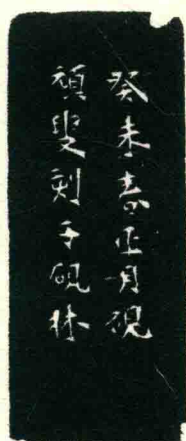 癸未春正月硯
頑叟刻于硯林